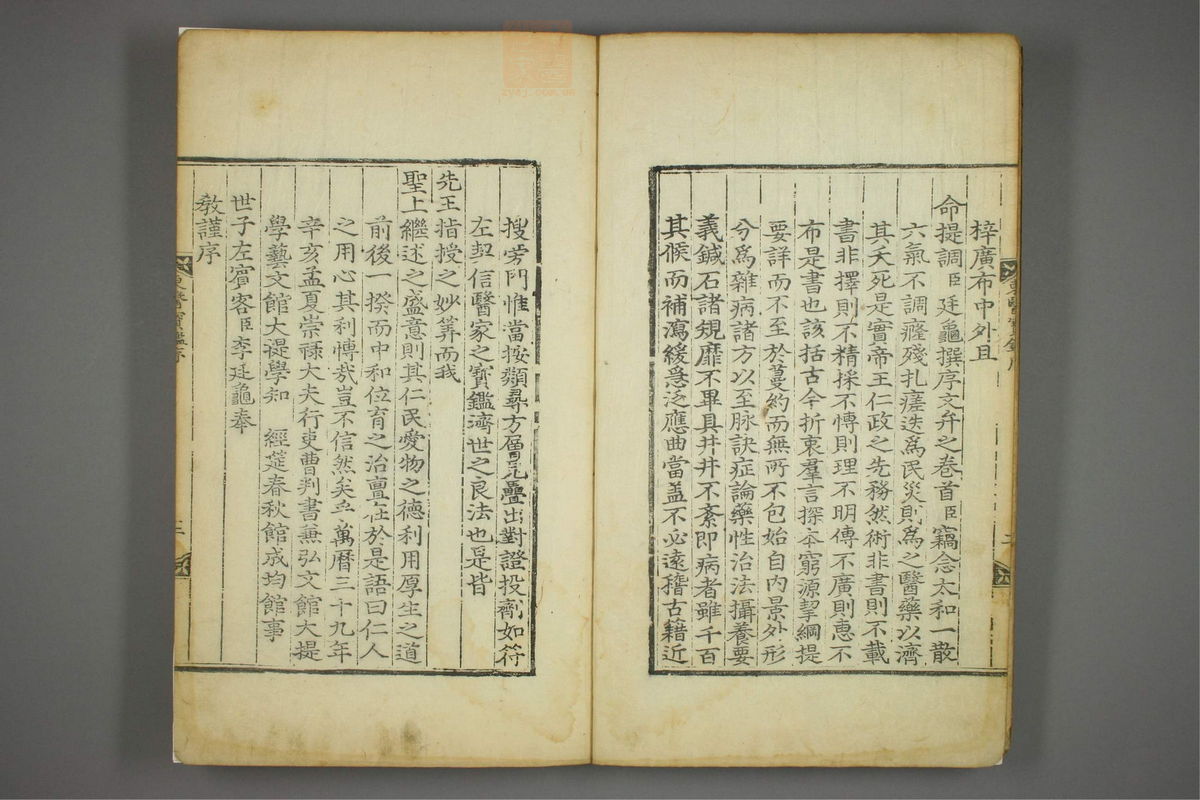 梓廣布中外且
命提調臣廷龜撰序文弁之卷首臣竊念太和一散
六氣不調癃殘扎瘥迭爲民災則爲之醫藥以濟
其夭死是實帝王仁政之先務然術非書則不載
書非擇則不精採不愽則理不明傳不廣則惠不
布是書也該括古今折衷羣言探本窮源挈綱提
要詳而不至於蔓約而無所不包始自內景外形
分爲雜病諸方以至脉訣症論藥性治法攝養要
義鍼石諸規靡不畢具井井不紊即病者雖千百
其候而補瀉緩急泛應曲當盖不必遠稽古籍近
搜旁門惟當按類尋方層見疊出對證投劑如符
左契信醫家之寶鑑濟世之良法也是皆
先王指授之妙筭而我
聖上繼述之盛意則其仁民愛物之德利用厚生之道
前後一揆而中和位育之治亶在於是語曰仁人
之用心其利愽哉豈不信然矣乎萬曆三十九年
辛亥孟夏崇祿大夫行吏曹判書兼弘文館大提
學藝文館大提學知 經筵春秋館成均館事
世子左賓客臣李廷龜奉
敎謹序
東醫寶鑑序
二